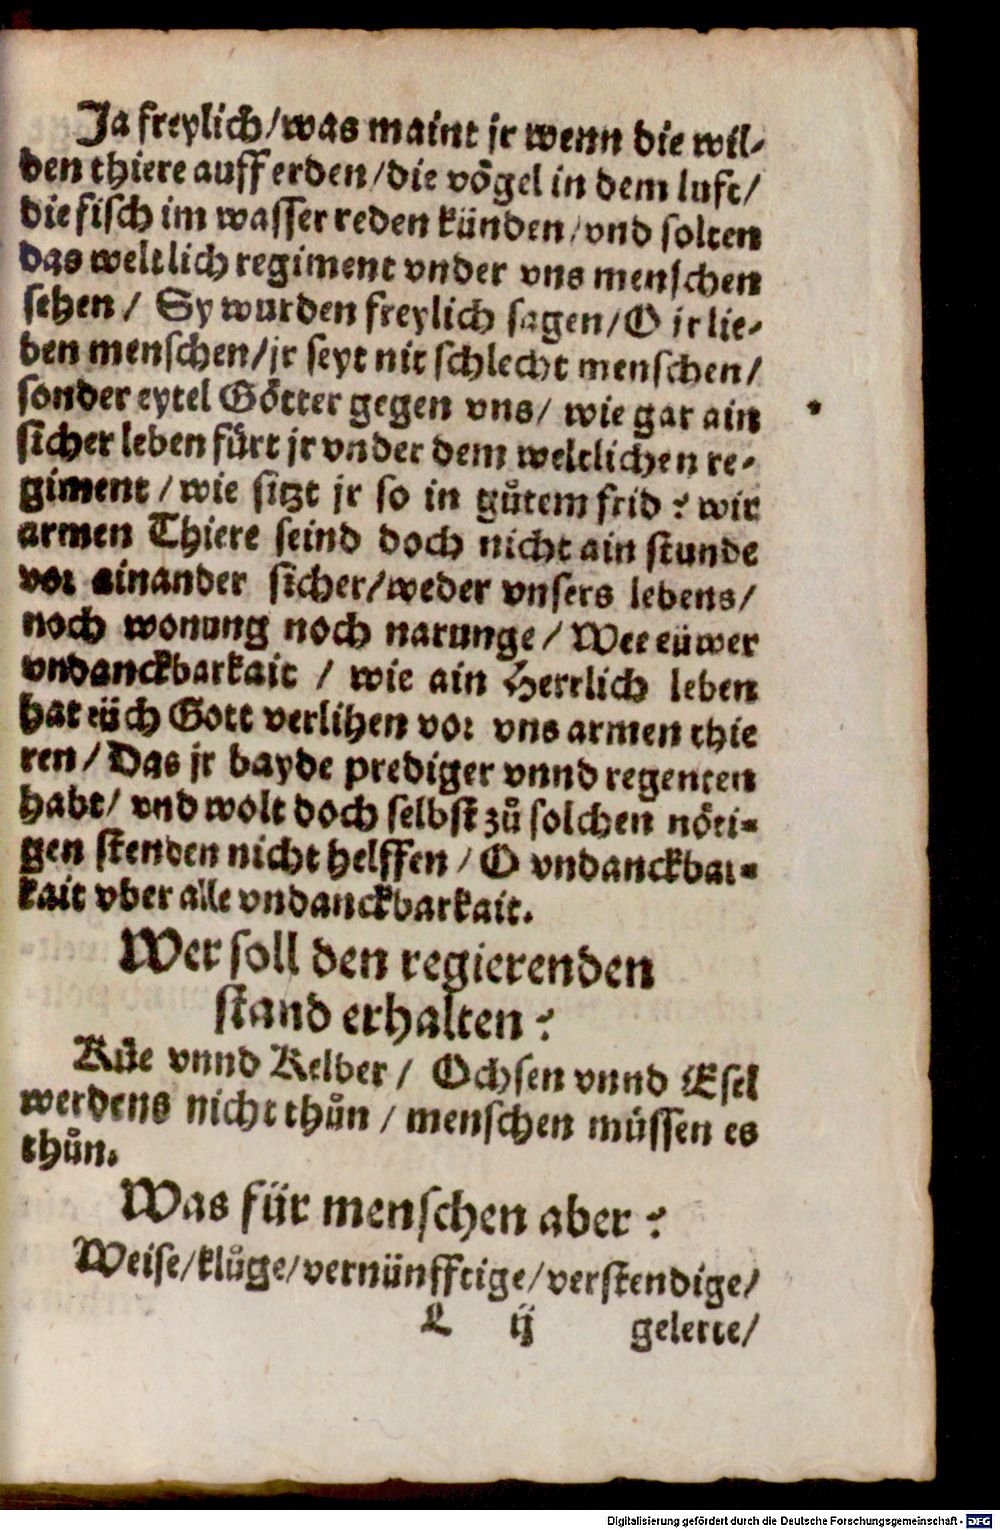 Ja freylich/was maint jr wenn die wil-
den thiere auff erden/die voͤgel in dem luft/
die fisch im wasser reden künden/vnd solten
das weltlich regiment vnder vns menschen
sehen/ Sy wurden freylich sagen/O jr lie-
ben menschen/jr seyt nit schlecht menschen/
sonder eytel Goͤtter gegen vns/ wie gar ain
sicher leben fuͤrt jr vnder dem weltlichen re-
giment/wie sitzt jr so in guͤtem frid? wir
armen Thiere seind doch nicht ain stunde
vor ainander sicher/weder vnsers lebens/
noch wonung noch narunge/ Wee eüwer
vndanckbarkait / wie ain Herrlich leben
hat eüch Gott verlihen vor vns armen thie
ren/Das jr bayde prediger vnnd regenten
habt/ vnd wolt doch selbst zuͦ solchen noͤti-
gen stenden nicht helffen/O vndanckbar-
kait vber alle vndanckbarkait.
Wer soll den regierenden
stand erhalten?
Kuͤe vnnd Kelber/ Ochsen vnnd Esel
werdens nicht thuͦn/menschen müssen es
thuͦn.
Was für menschen aber?
Weise/kluͦge/vernünfftige/verstendige/
L ij gelerte/
Digitalisierung gefördert durch die Deutsche Forschungsgemeinschaft - DFG